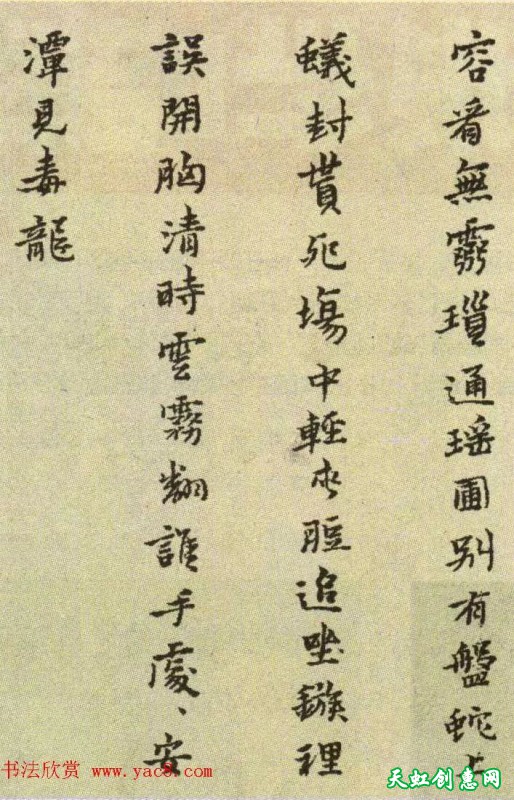 容着無瑣通瑤圃別有盤蛇上
蟻封貰死場中輕脰追鏃裡
誤開胸清時雲霧翻誰手處、安
潭見毒龍
书法欣赏 www.yac8.com
天虹创惠网